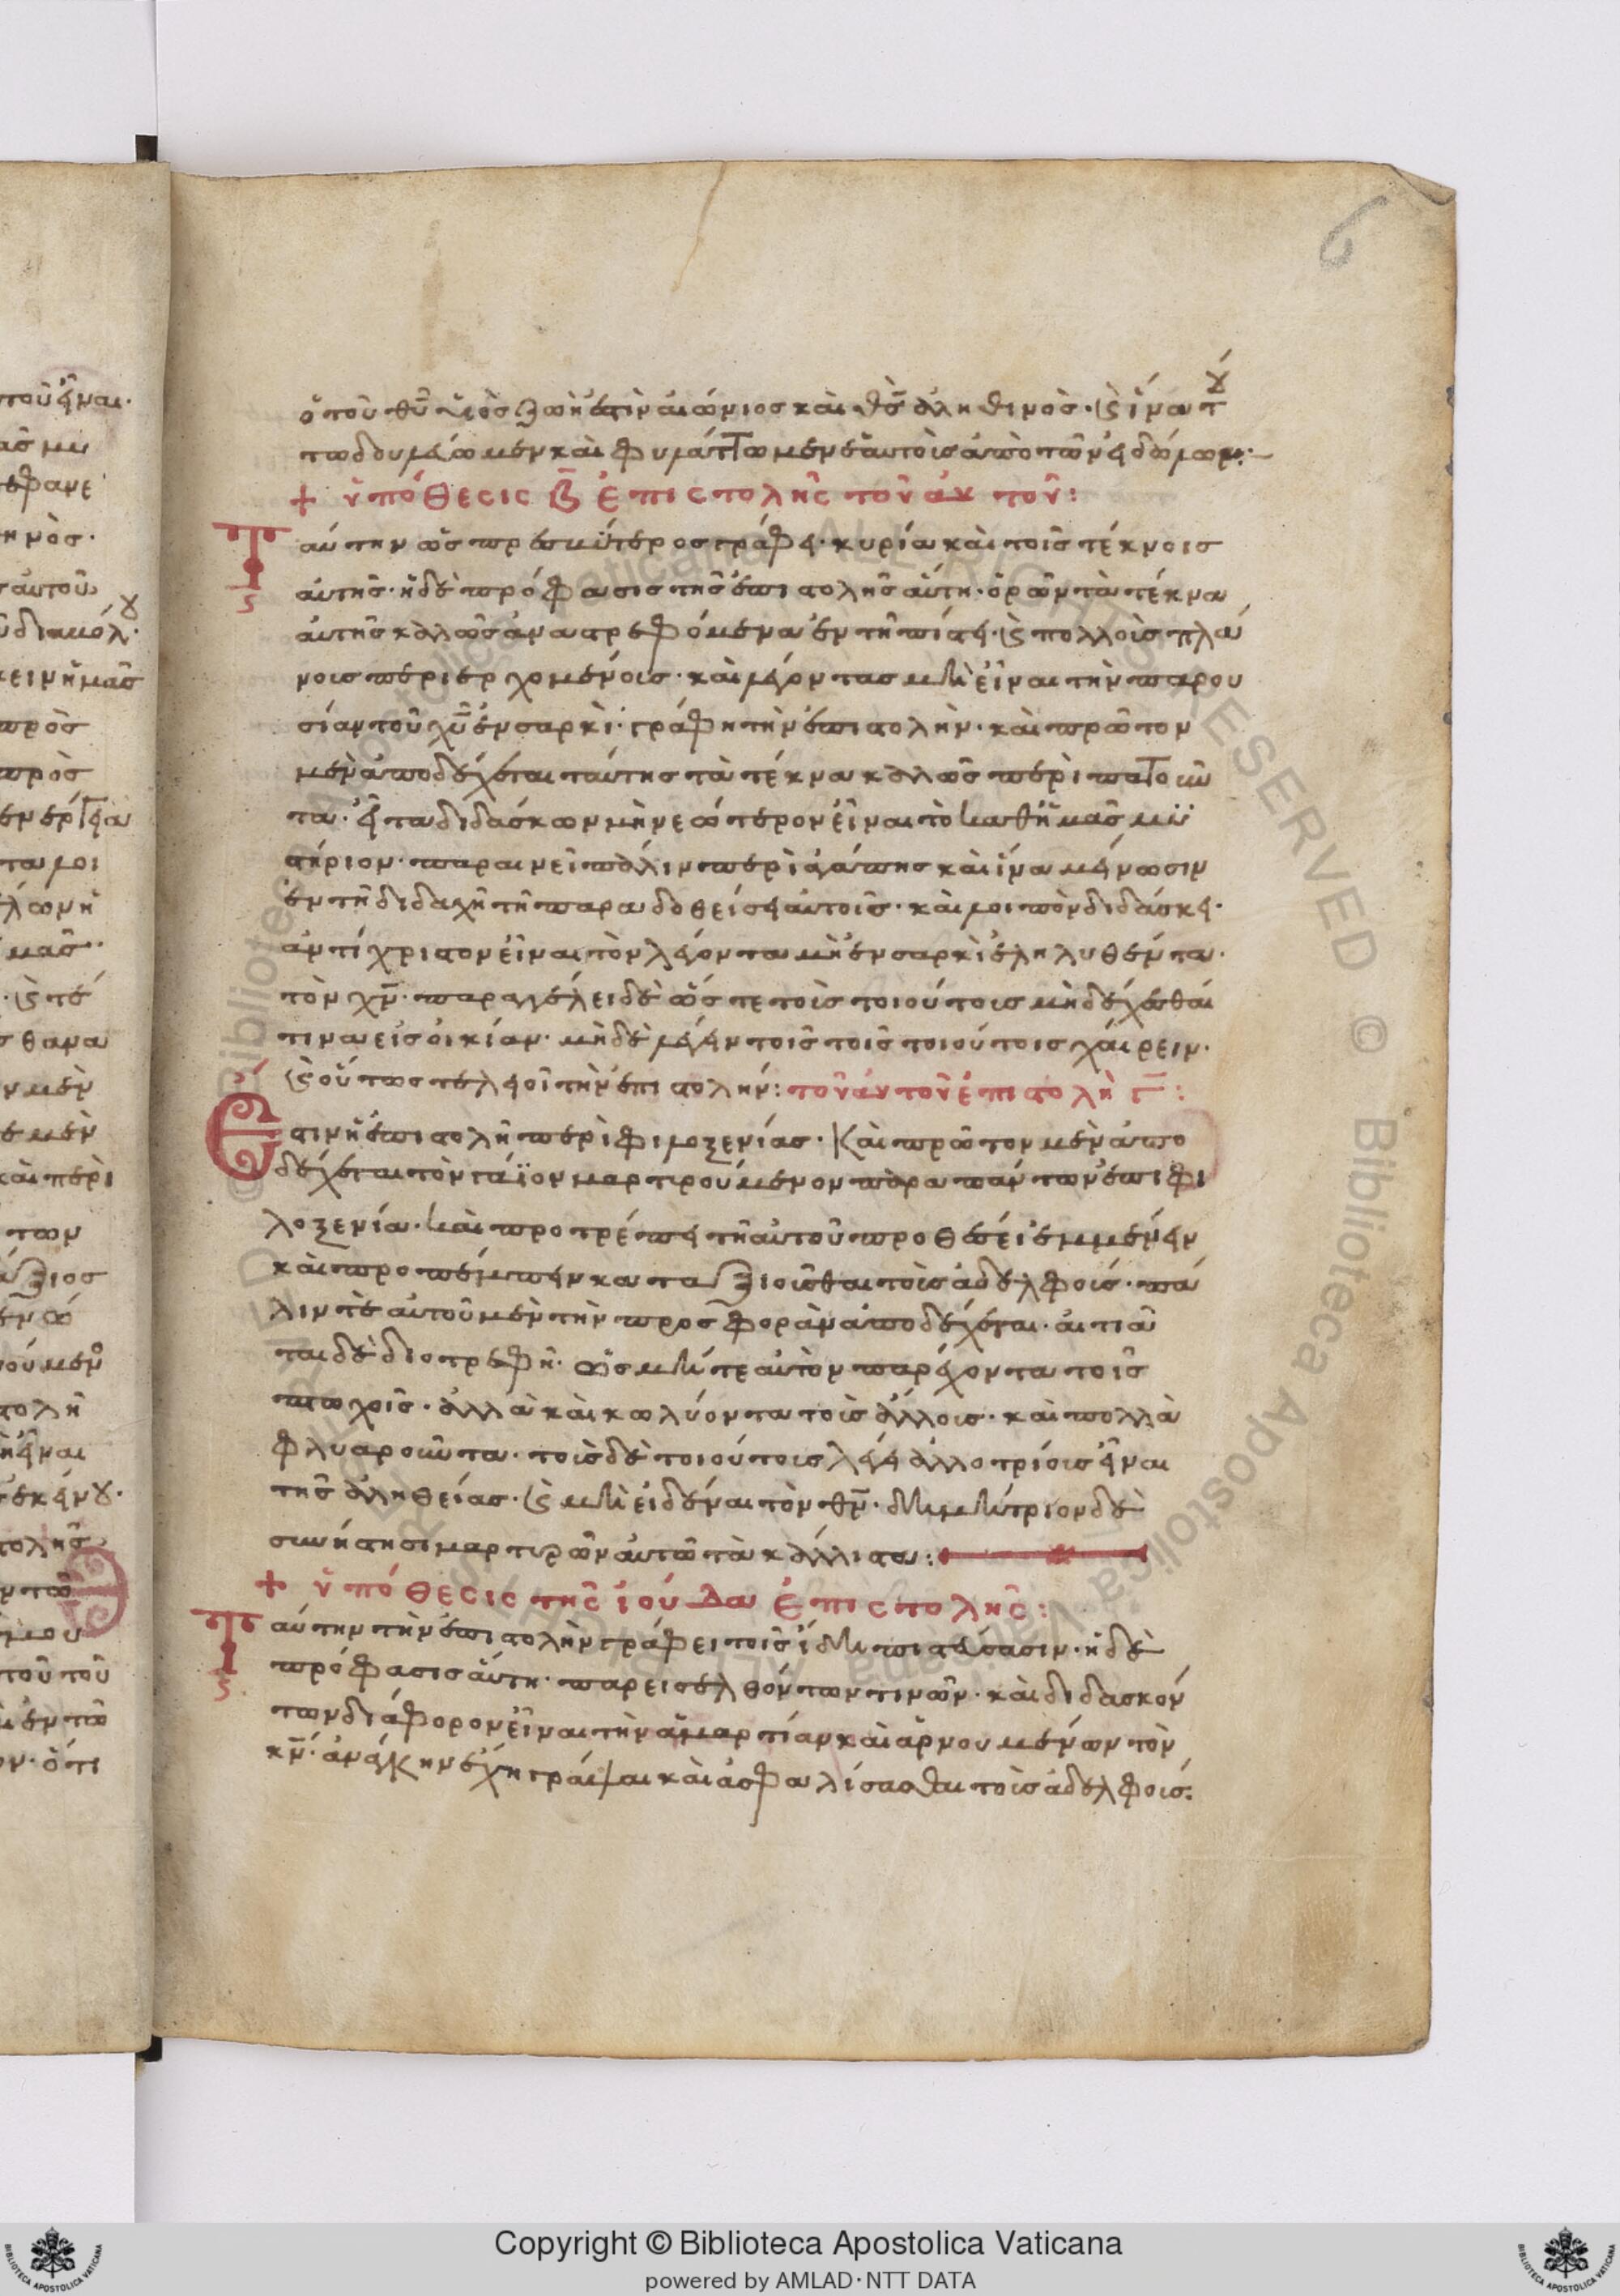 6
ὁ τοῦ θῦ υἱὸς ζωή ἐστὶν αἰώνιος καὶ θς ἀληθινὸς· καὶ ἵνα τού
τω δουλεύωμεν καὶ φυλάττωμεν ἑαυτοὺς ἀπὸ τῶν εἰδώλων:
+ ὑπόθεσις β ἐπιστολῆς τοῦ αὐτοῦ:
Ταύτην ὡς πρεσβύτερος γράφει· κυρία καὶ τοῖς τέκνοις
αὐτῆς· ἡ δὲ πρόφασις τῆς ἐπιστολῆς αὕτη· ὁρῶν τὰ τέκνα
αὐτῆς καλῶς ἀναστρεφόμενα ἐν τῆ πίστει· καὶ πολλοὺς πλά
νους περιερχομένους· καὶ λέγοντας μὴ εἶναι τὴν παρου
σίαν τοῦ χῦ ἐν σαρκὶ· γράφη τὴν ἐπιστολὴν· καὶ πρῶτον
μὲν ἀποδέχεται ταύτης τὰ τέκνα καλῶς περιπατοῦν
τα· εἶτα διδάσκων μὴ νεώτερον εἶναι τὸ καθ ἡμᾶς μυ
στήριον· παραινεῖ πάλιν περὶ ἀγάπης καὶ ἵνα μένωσιν
ἐν τῆ διδαχῆ τῆ παραδοθείση αὐτοῖς· καὶ λοιπὸν διδάσκει·
ἀντίχριστον εἶναι τὸν λέγοντα μὴ ἐν σαρκὶ ἐληλυθέναι
τὸν χν· παραγγέλει δὲ ὥστε τοὺς τοιούτους μὴ δέχεσθαί
τινα εἰς οἰκίαν· μὴ δὲ λέγειν τοῖς τοῖς τοιούτοις χαίρειν·
καὶ οὕτως τελειοῖ τὴν ἐπιστολήν: τοῦ αὐτοῦ ἐπιστολὴ γ:
Ἔστιν ἡ ἐπιστολὴ περὶ φιλοξενίας· καὶ πρῶτον μὲν ἀπο
δέχεται τὸν γάϊον μαρτυρούμενον παρα πάντων ἐπι φι
λοξενία· καὶ προτρέπει τῆ αὐτοῦ προθέσει ἐμμένειν
καὶ προπέμπειν καταξιοῦσθαι τοὺς ἀδελφούς· πά
λιν τὲ αὐτοῦ μὲν τὴν προσφορὰν ἀποδέχεται· αἰτιᾶ
ται δὲ διοτρεφῆ· ὡς μήτε αὐτὸν παρέχοντα τοῖς
πτωχοῖς· ἀλλὰ καὶ κωλύοντα τοὺς ἄλλους· καὶ πολλὰ
φλυαροῦντα· τοὺς δὲ τοιούτους λέγει ἀλλοτρίους εἶναι
τῆς ἀληθείας· καὶ μὴ εἰδέναι τὸν θν· δημήτριον δὲ
συνίστησι μαρτυρῶν αὐτῶ τὰ κάλλιστα:
+ ὑπόθεσις τῆς ἰούδα ἐπιστολῆς:
Ταύτην τὴν ἐπιστολὴν γράφει τοῖς ἤδη πιστεύσασιν· ἡ δὲ
πρόφασις αὕτη· παρεισελθόντων τινῶν· καὶ διδασκόν
των διάφορον εἶναι τὴν ἁμαρτίαν καὶ ἀρνουμένων τὸν
κν· ἀνάγκην ἔχη γράψαι καὶ ἀσφαλίσασθαι τοὺς ἀδελφούς:
Copyright © Biblioteca Apostolica Vaticana
powered by AMLAD·NTT DATA